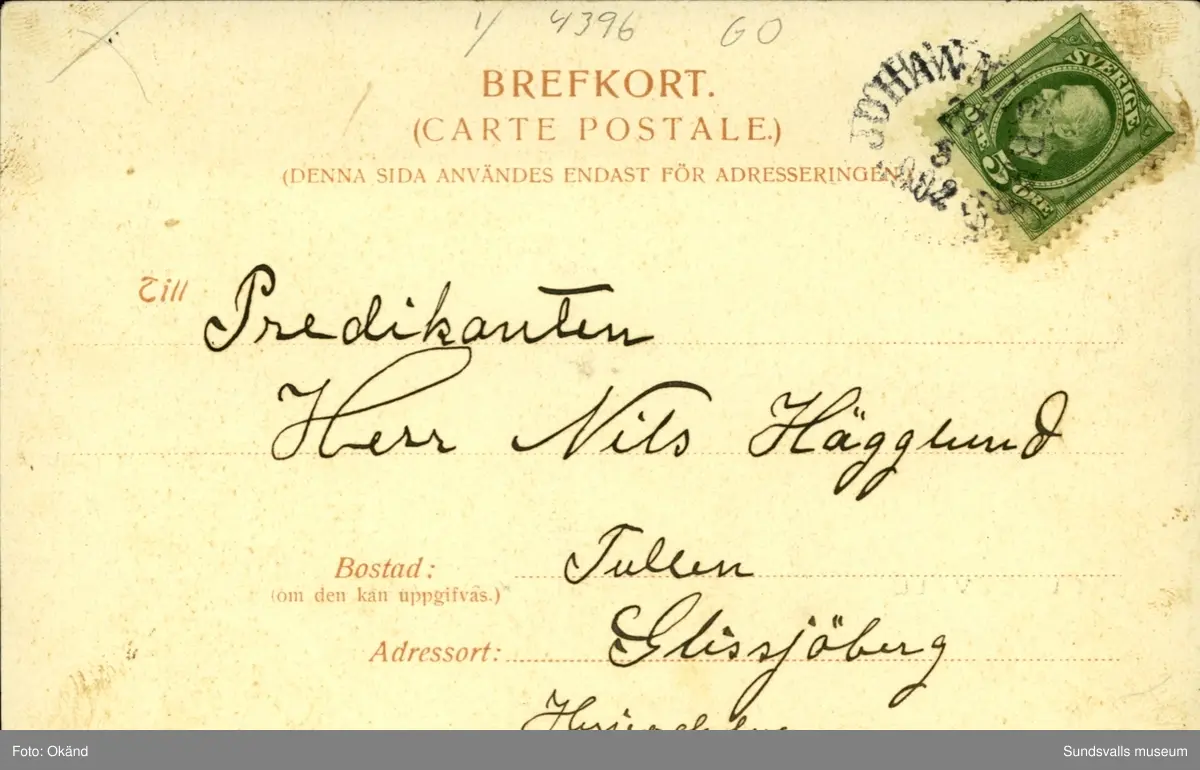 1/ 4396 GO
BREFKORT.
(CARTE POSTALE.)
(DENNA SIDA ANVÄNDES ENDAST FÖR ADRESSERINGEN
SVERIGE
ÖRE 5 ÖRE
21
5
1902
Till Predikanten
Herr Nils Hägglund
Bostad: Tullen
(om den kan uppgifvas.)
Adressort: Glissjöberg
Foto: Okänd
Sundsvalls museum